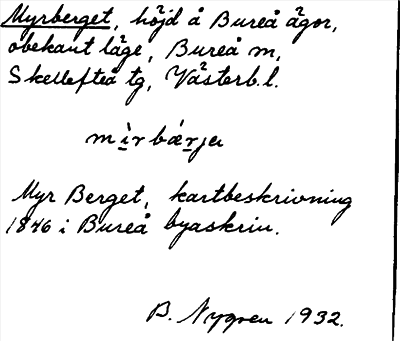 Myrberget, höjd å Bureå ägor,
obekant läge, Bureå sn,
Skellefteå tg, Västerb.l.
mìrbǽrje
Myr Berget, kartbeskrivning
1846 i Bureå byaskrin.
B. Nygren 1932.